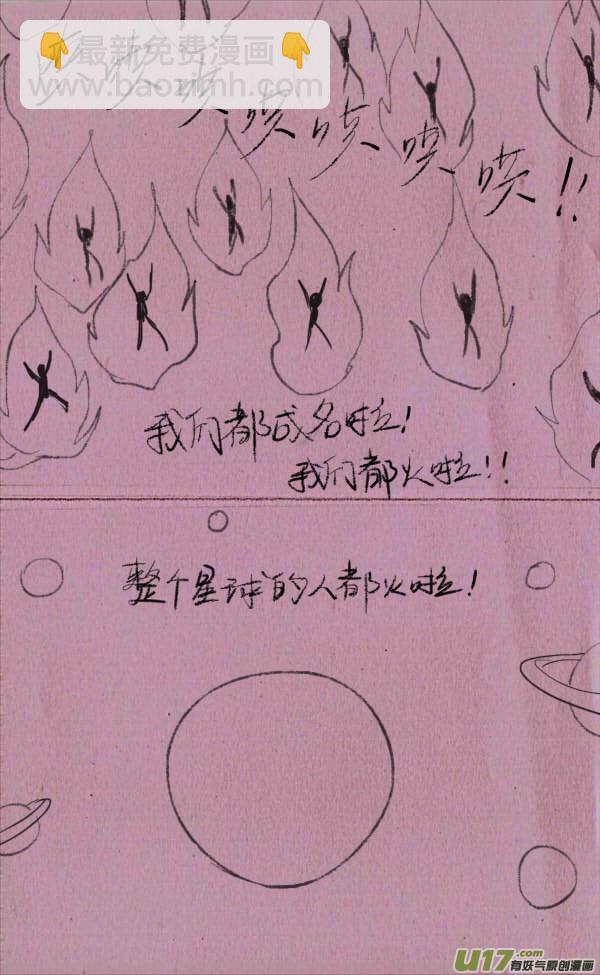 👇最新免费漫画👇
www.baozimh.com
哎哎哎哎!!
我们都成名啦!
我们都火啦!!
整个星球的人都火啦!
U17.com
有妖气原创漫画